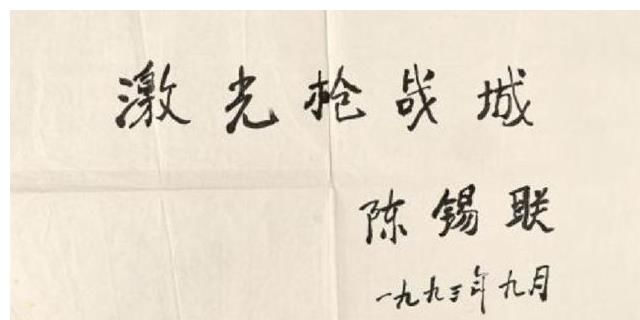 激光枪战城
陈锡联
一九九三年九月